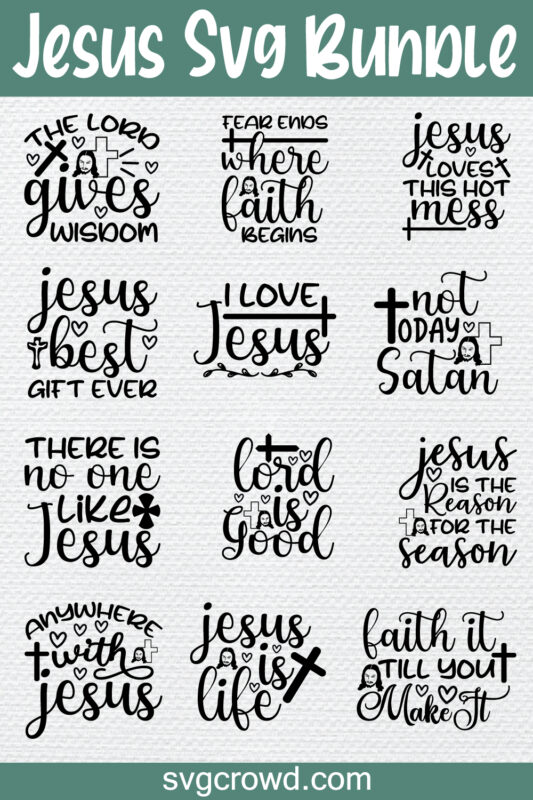 Jesus Svg Bundle
THE LORD
gives
WISDOM
FEAR ENDS
where
faith
BEGINS
jesus
LOVES
THIS HOT
mess
jesus
best
GIFT EVER
I LOVE
Jesus
not
TODAY
Satan
THERE IS
no one
LIKE
Jesus
lord
is
Good
jesus
IS THE
Reason
FOR THE
season
ANYWHERE
with
jesus
jesus
is
life
faith it
TILL YOU
Make It
svgcrowd.com